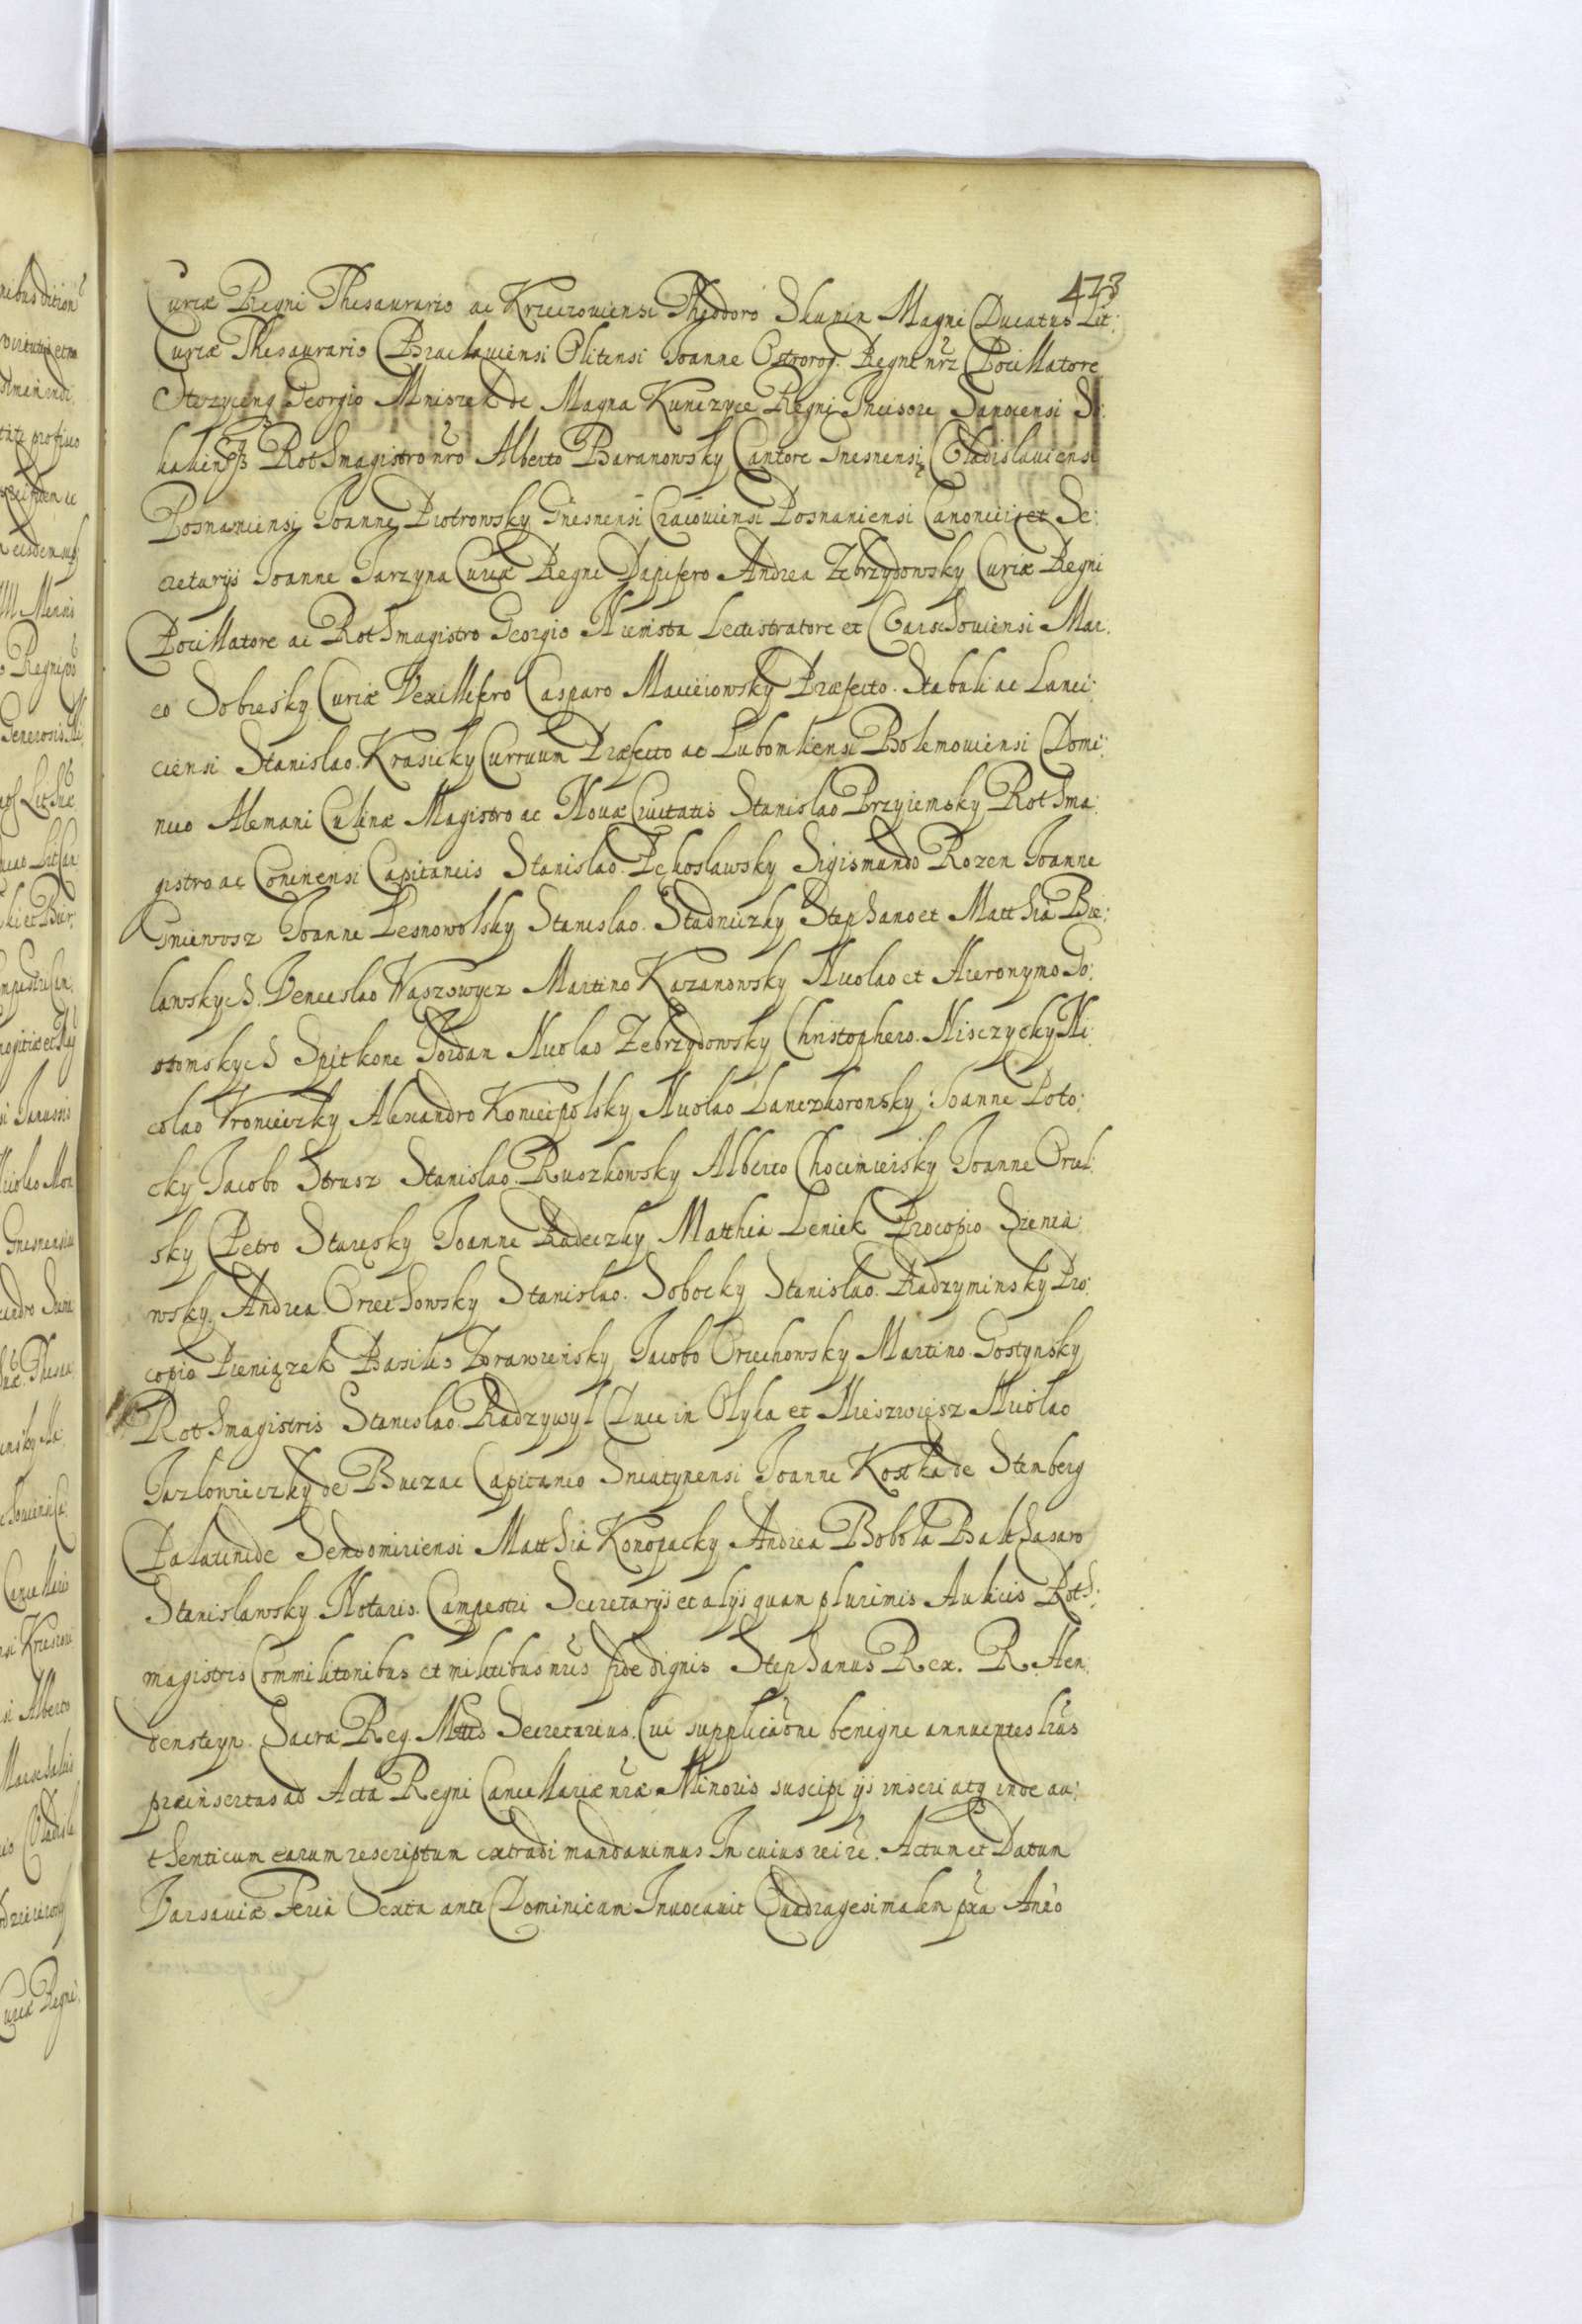 473
Curiæ Regni Thesaurario ac Krzeczoviensi Theodoro Skunin Magni Ducatus Lit:
Curiæ Thesaurario Braclaviensi Olitensi Joanne Ostrorog Regni nrz Pocillatore
Georgio Mniszek de Magna Kunczyce Regni Incisore Sanocensi So:
Rothmagistro nro Alberto Baranowsky Cantore Gnesnensi Vladislaviensi
Posnaniensi Joanne Piotrowsky Gnesnensi Cracoviensi Posnaniensi Canonicis et Se:
cretarijs Joanne Jarzyna Curiæ Regni Dapifero Andrea Zebrzydowsky Curiæ Regni
Pocillatore ac Rothmagistro Georgio Niemsta Lectistratore et Warschoviensi Mar:
co Sobiesky Curiæ Vexillifero Casparo Macieiowsky Præfecto Stabuli ac Lanci:
ciensi Stanislao Krasicky Curruum Præfecto ac Lubomliensi Bolemoviensi Domi:
nico Alemani Culinæ Magistro ac Novæ Civitatis Stanislao Przyiemsky Rothma:
gistro ac Coninensi Capitaneis Stanislao Pękoslawsky Sigismundo Rozen Joanne
Gniewosz Joanne Lesnowolsky Stanislao Stadniczky Stephano et Matthia Bie:
lawskych Venceslao Wąszowycz Martino Kazanowsky Nicolao et Hieronymo Go:
stomskych Spitkone Jordan Nicolao Zebrzydowsky Christophero Nisczycky Ni:
colao Vronieczky Alexandro Koniecpolsky Nicolao Lanczkoronsky Joanne Poto:
cky Jacobo Strusz Stanislao Ruszkowsky Alberto Chocimiersky Joanne Orzel:
sky Petro Staręsky Joanne Radeczky Matthia Leniek Procopio Sienia:
wsky Andrea Orzechowsky Stanislao Sobocky Stanislao Radzyminsky Pro:
copio Pieniązek Basilio Zorawieńsky Jacobo Orzechowsky Martino Gostynsky
Rothmagistris Stanislao Radzywyl Duce in Olyka et Nieszwiesz Nicolao
Jazlowieczky de Buczac Capitaneo Sniatynensi Joanne Kostka de Stenberg
Palatinide Sendomiriensi Matthia Konopacky Andrea Bobola Balthasaro
Stanislawsky Notario Campestri Secretarijs et alijs quam plurimis Aulicis Roth:
magistris Commilitonibus et militibus nris fide dignis Stephanus Rex. R. Hen:
densteyn Sacræ Reg. Mttis Secretarius. Cui supplicaõne benigne annuentes lras
præinsertas ad Acta Regni Cancellariæ nræ Minoris suscipi ijs inseri atq inde au:
thenticum earum rescriptum extradi mandavimus In cuius rei &c. Actum et Datum
Varsaviæ Feria Sexta ante Dominicam Invocavit Quadragesimalem pxa Anno